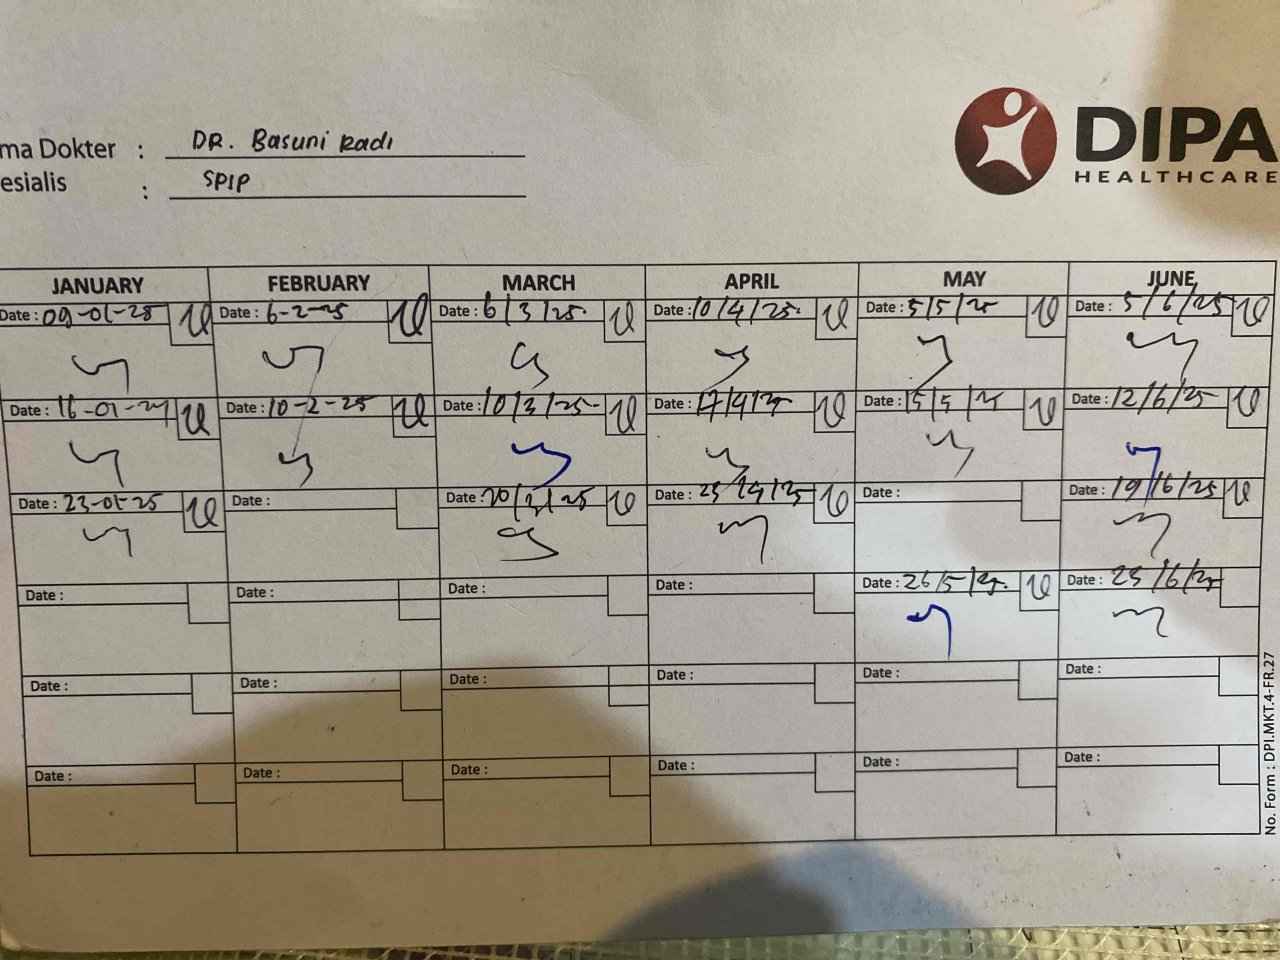 ma Dokter : DR. Basuni Radi
esialis : SPIP
DIPA
HEALTHCARE
JANUARY FEBRUARY MARCH APRIL MAY JUNE
Date : 09-01-25 Date : 6-2-25 Date : 6/3/25. Date : 10/4/25. Date : 5/5/25 Date : 5/6/25
Date : 16-01-25 Date : 10-2-25 Date : 10/3/25- Date : 17/4/25 Date : 15/5/25 Date : 12/6/25
Date : 23-01-25 Date : Date : 20/3/25 Date : Date : Date : 19/6/25
Date : Date : Date : Date : Date : 26/5/25. Date : /6/25
Date : Date : Date : Date : Date : Date :
Date : Date : Date : Date : Date : Date :
No. Form : DPI.MKT.4-FR.27